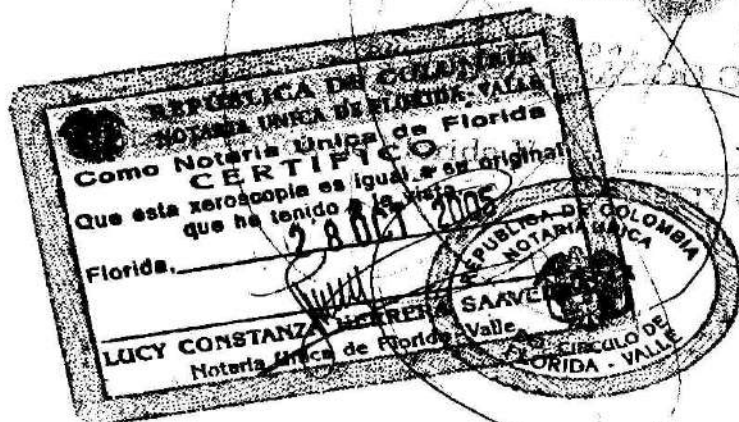 REPÚBLICA DE COLOMBIA
NOTARIA UNICA DE FLORIDA-VALLE
Como Notaria Única de Florida
CERTIFICO
Que esta xeroscopia es igual a su original
que he tenido a la vista
Florida, 28 OCT 2005
LUCY CONSTANZA HERRERA SAAVE
Notaria Única de Florida Valle
REPUBLICA DE COLOMBIA
NOTARIA UNICA
CIRCULO DE
FLORIDA - VALLE